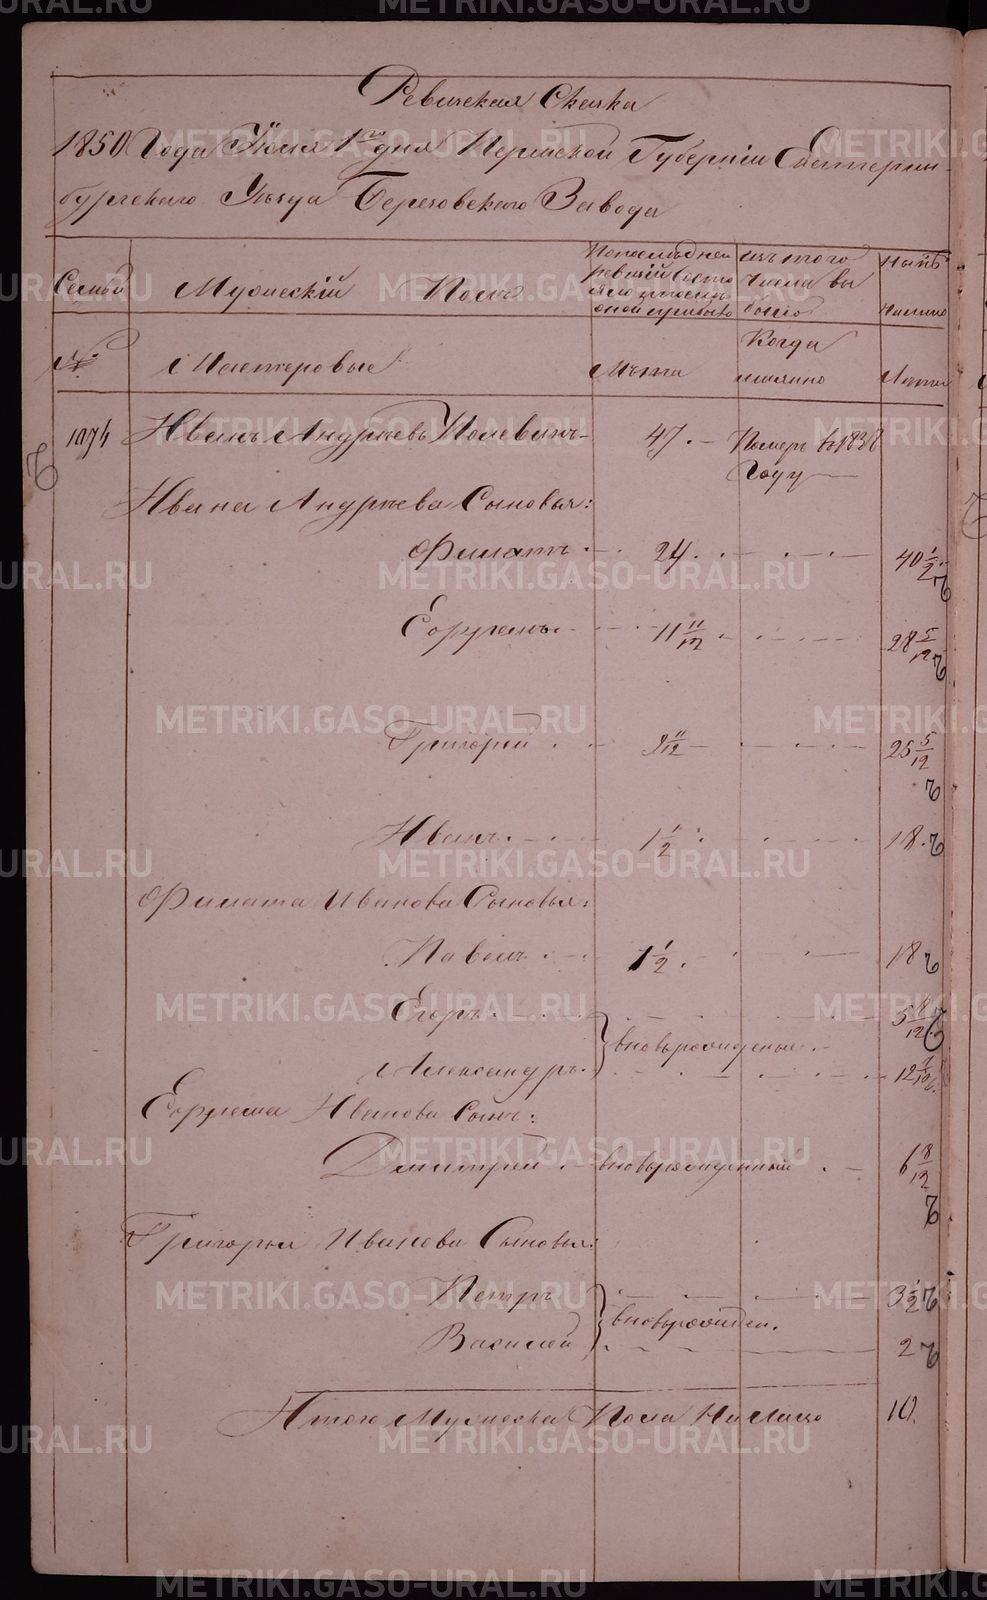 Ревизская Сказка
1850 Года Июля 1го дня Пермской Губернии Екатерин-
бургского Уѣзда Березовскаго Завода
Семьи Мужескій Полъ По последней ревизій состояло и после оной прибыло изъ того числа выбыло Нынѣ на лицо
№ Мастеровые Лѣта Когда имянно Лѣта
1074 Иванъ Андрѣевъ Полевинъ 47. Померъ въ 1838 Году
Ивана Андрѣева Сыновья:
Филатъ 24. 40 1/2
Ефремъ 11 11/12 28 5/12
Григорей 9 11/12 25 5/12
Иванъ 1 1/2 18
Филата Иванова Сыновья:
Павелъ 1 1/2 18
Егоръ 5 8/12
вновьрожденые
Александръ 12
Ефрема Иванова Сынъ:
Дмитрей вновьрожденный 6 8/12
Григорья Иванова Сыновья:
Петръ 3 1/2
вновьрожден.
Василей 2
Итого Мужеска Пола На Лицо 10.
METRIKI.GASO-URAL.RU